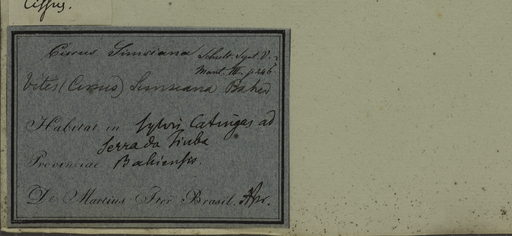 Cissus.
Cissus Simsiana Schult. Syst. V. 2
Mant. III. p. 246
Vitis (Cissus) Simsiana Baker
Habitat in Sylvis Catingas ad
Serra da Tiuba
Provinciae Bahiensis.
De Martius Iter Brasil. Apr.